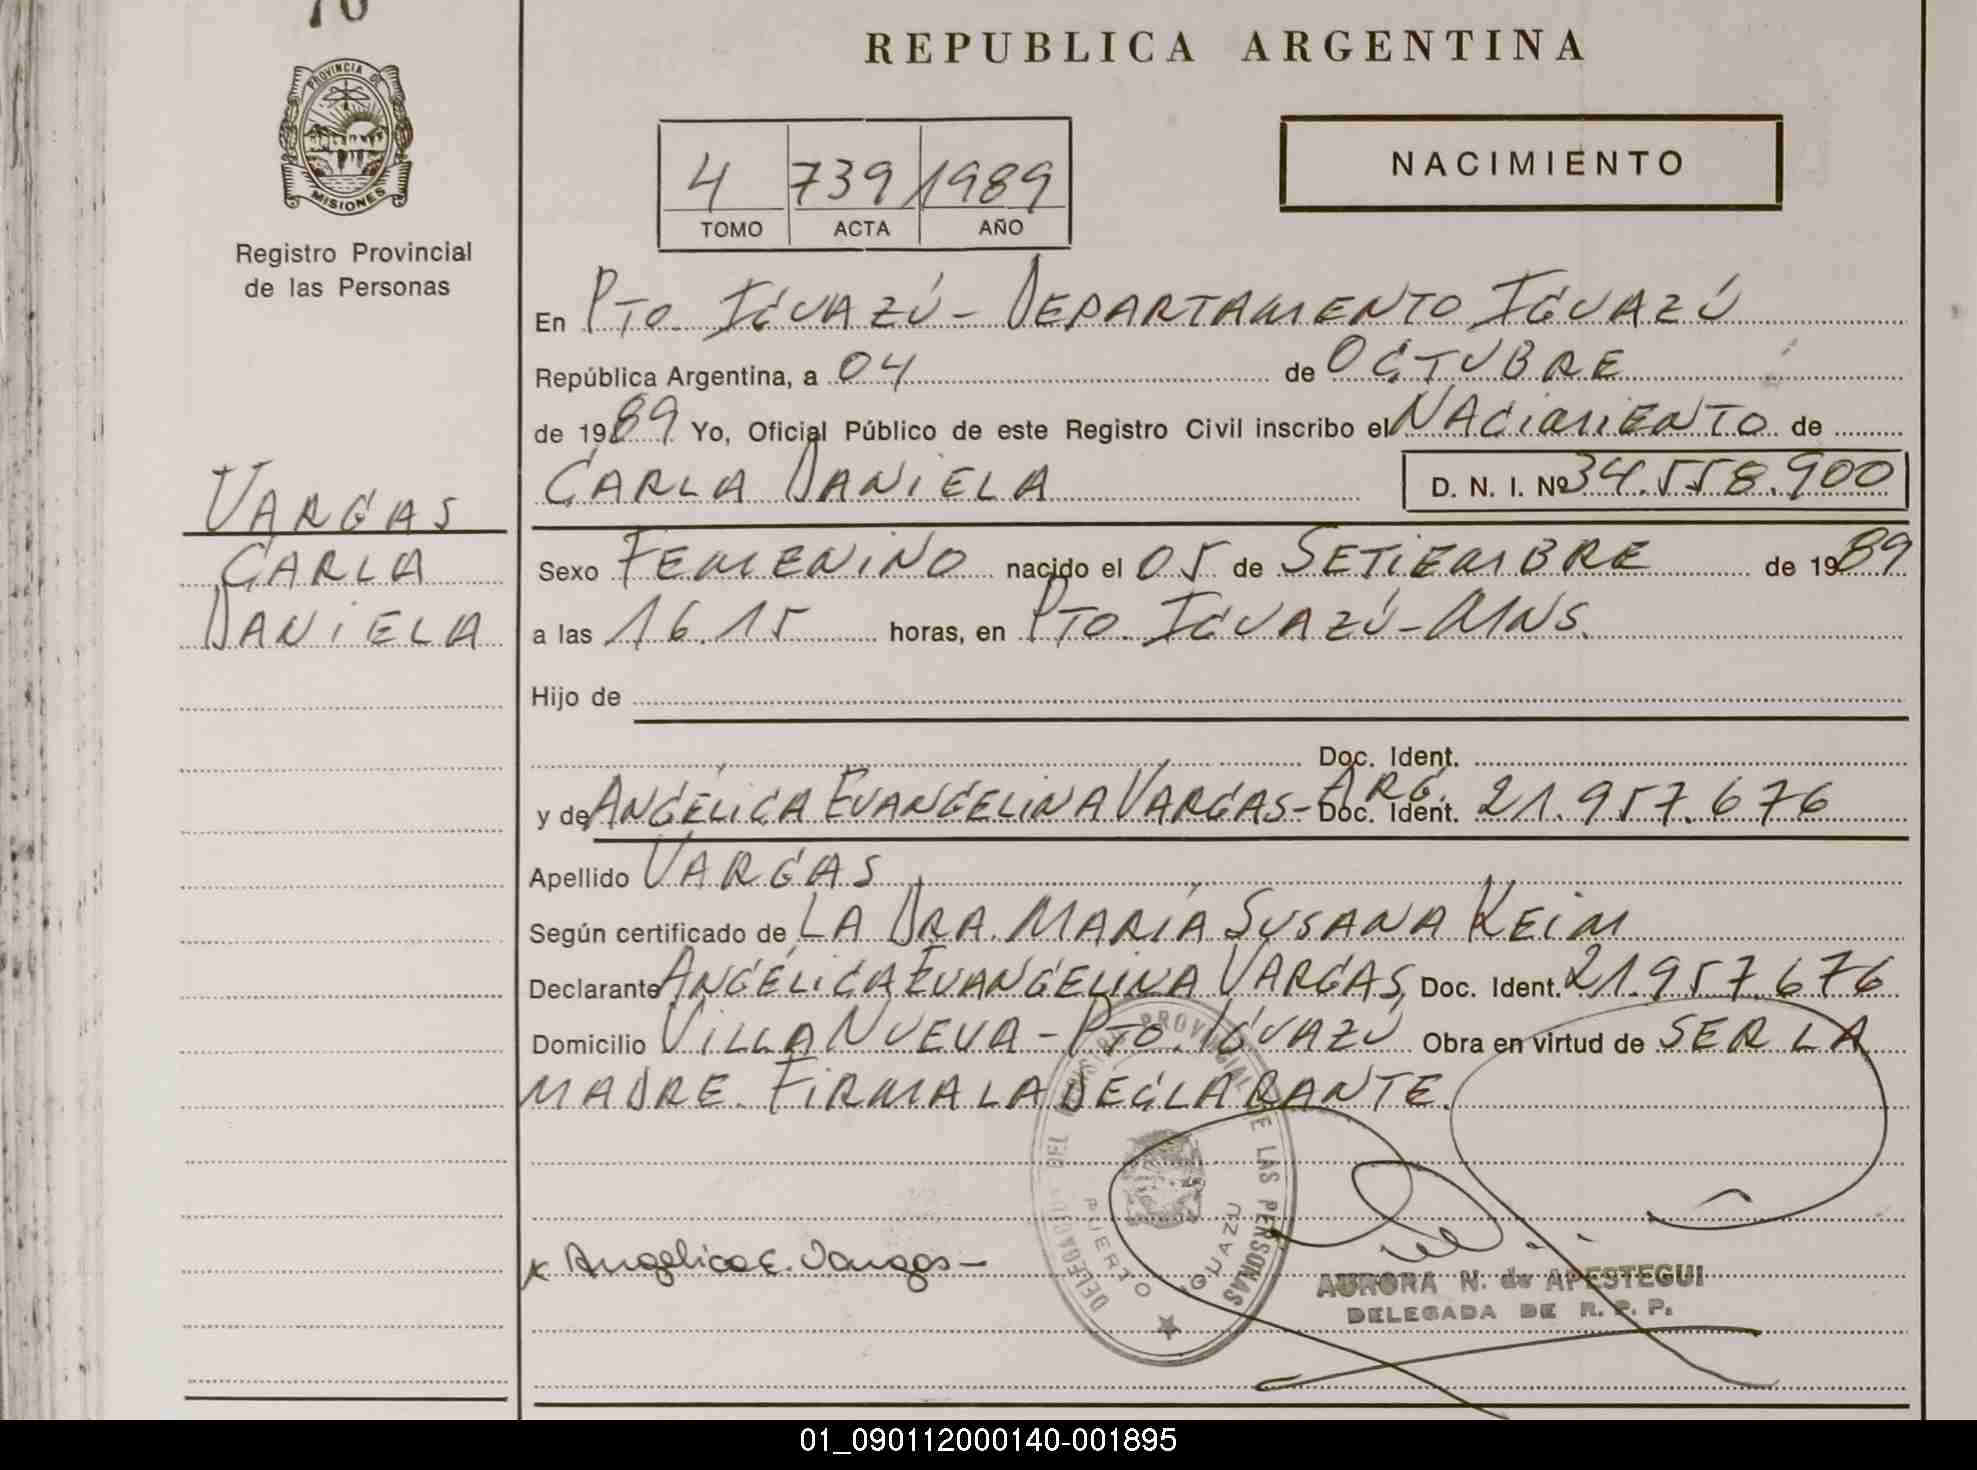 REPUBLICA ARGENTINA
PROVINCIA DE
MISIONES
Registro Provincial
de las Personas
4 739 1989
TOMO ACTA AÑO
NACIMIENTO
En PTO IGUAZÚ - DEPARTAMENTO IGUAZÚ
República Argentina, a 04 de OCTUBRE
de 1989 Yo, Oficial Público de este Registro Civil inscribo el NACIMIENTO de
CARLA DANIELA D. N. I. Nº 34.558.900
VARGAS
CARLA
DANIELA
Sexo FEMENINO nacido el 05 de SETIEMBRE de 1989
a las 16.15 horas, en PTO. IGUAZÚ - MNS.
Hijo de
Doc. Ident.
y de ANGÉLICA EVANGELINA VARGAS - ARG. Doc. Ident. 21.957.676
Apellido VARGAS
Según certificado de LA DRA. MARÍA SUSANA KEIM
Declarante ANGÉLICA EVANGELINA VARGAS, Doc. Ident. 21.957.676
Domicilio VILLA NUEVA - PTO. IGUAZÚ Obra en virtud de SER LA
MADRE. FIRMA LA DECLARANTE.
DELEGACION DEL REGISTRO PROVINCIAL DE LAS PERSONAS
PUERTO IGUAZU
x Angelica E. Vargas -
AURORA N. de APESTEGUI
DELEGADA DE R. P. P.
01_090112000140-001895